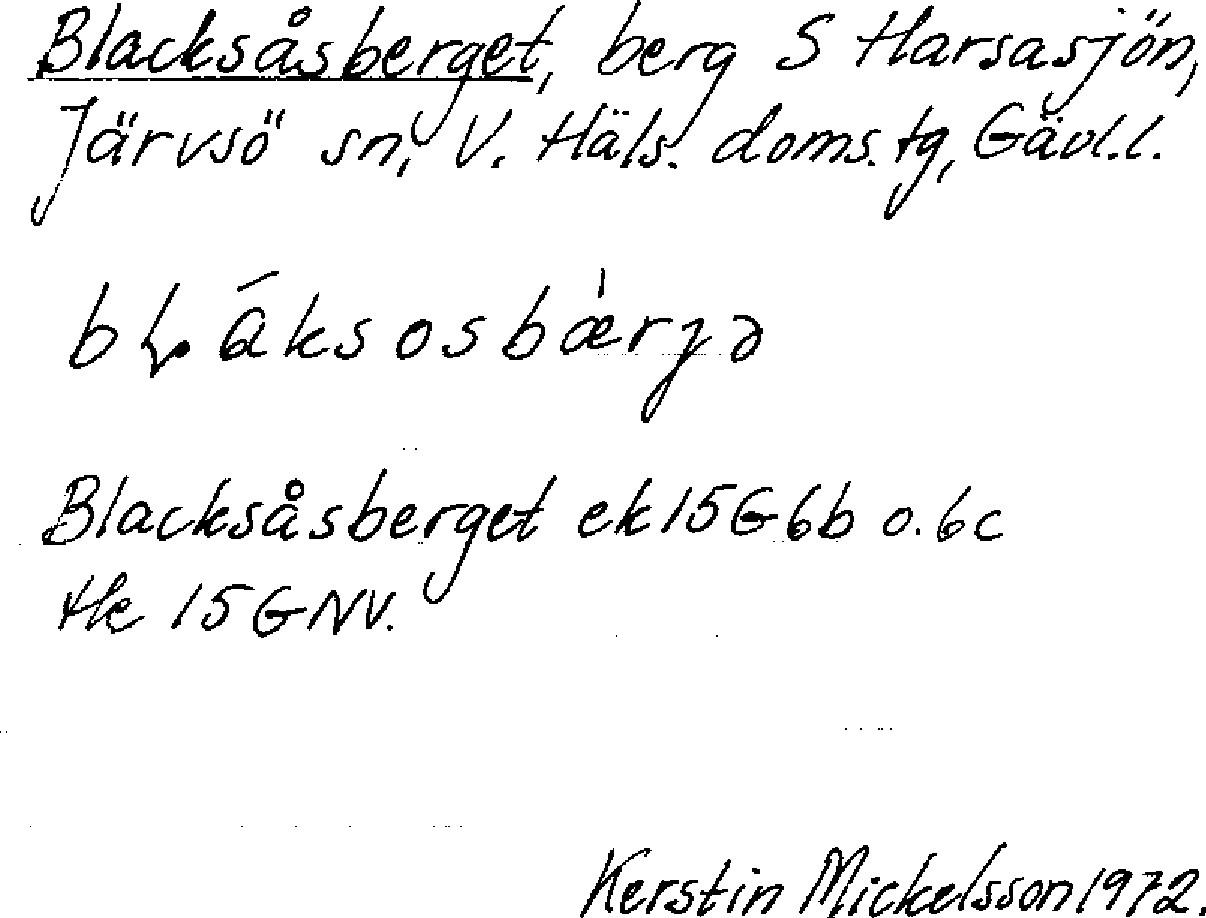 Blacksåsberget, berg S Harsasjön,
Järvsö sn, V. Häls. doms. tg, Gävl.l.
Blacksåsberget ek 15G6b o. 6c
tk 15GNV.
Kerstin Mickelsson 1972.